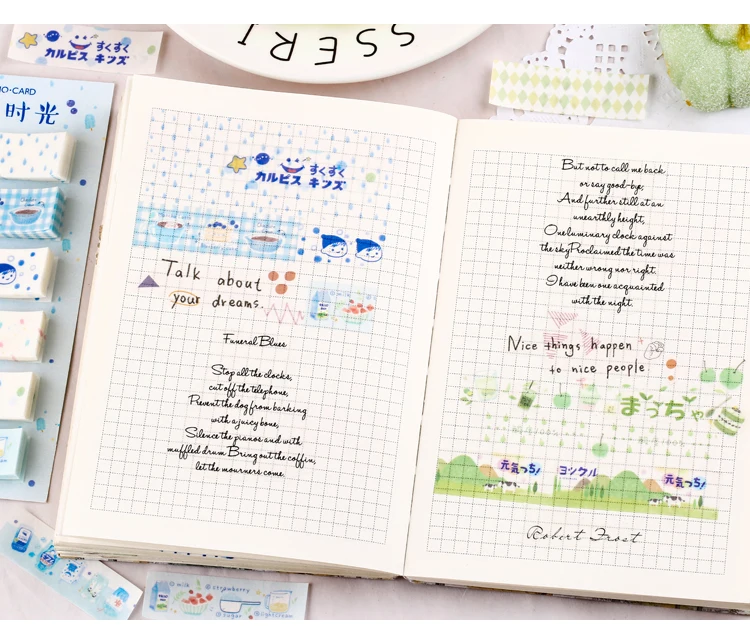 すくすく
カルピス キッズ
SSERT
O·CARD
时光
すくすく
カルピス キッズ
Talk about
your dreams.
Funeral Blues
Stop all the clocks,
cut off the telephone,
Prevent the dog from barking
with a juicy bone,
Silence the pianos and with
muffled drum Bring out the coffin,
let the mourners come.
But not to call me back
or say good-bye;
And further still at an
unearthly height,
One luminary clock against
the skyProclaimed the time was
neither wrong nor right.
I have been one acquainted
with the night.
Nice things happen
to nice people.
まっちゃ
元気っち!
ヨックル
元気っち!
Robert Frost
milk
strawberry